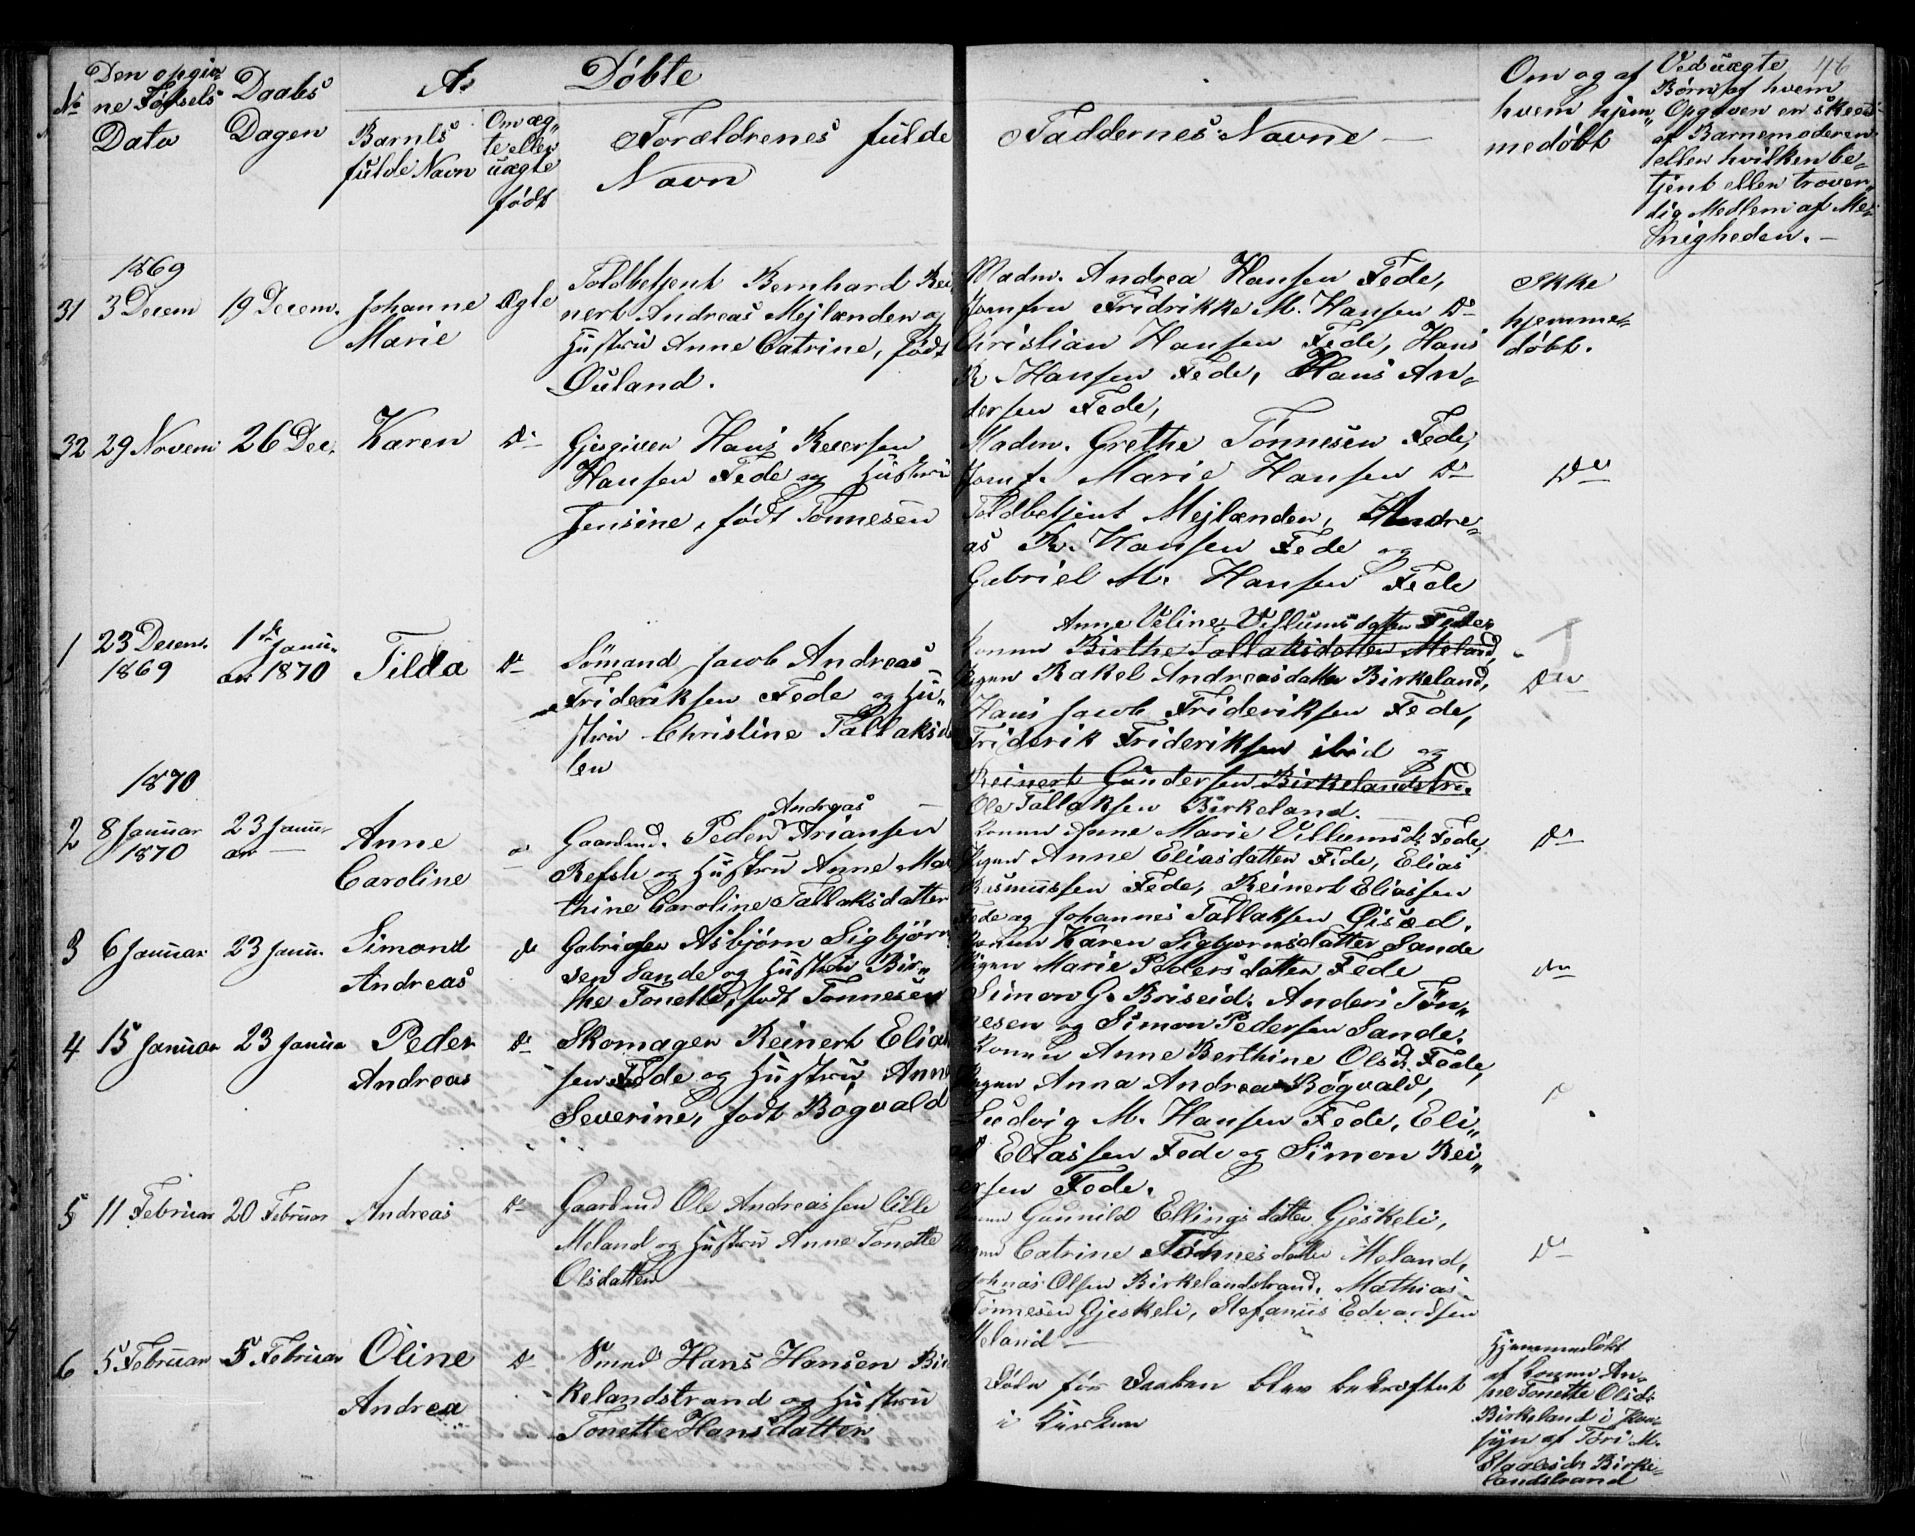 46
A. Døbte
No
Den opgiv
ne Fødsels
Dato
Daabs
Dagen
Barnets
fulde Navn
Om æg„
te eller
uægte
født
Forældrenes fulde
Navn
Faddernes Navne —
Om og af
hvem hjem„
medøbt
Ved uægte
Børn, af hvem
Opgaven er skeed
af Barnemoderen
eller hvilken be„
tjent eller trover„
dig Medlem af Me„
nigheden. —
1869
31 3 Decem 19 Decem. Johanne
Marie
Ægte
Toldbetjent Bernhard Rei
nert Andreas Mejlænder og
Hustru Anne Catrine, født
Øuland.
Madm. Andrea Hansen Fede,
Jomfru Fridrikke M. Hansen Do
Christian Hansen Fede, Hans
R. Hansen Fede, Hans An„
dersen Fede,
Ikke
hjemme„
døbt.
32 29 Novem 26 Dec. Karen Do
Gjesgiver Hans Reiersen
Hansen Fede og Hustru
Jensine, født Tønnesen
Madm. Grethe Tønnesen Fede,
Jomf. Marie Hansen Do
Toldbetjent Mejlænder, Andre„
as R. Hansen Fede og
Gabriel M. Hansen Fede
Do
1 23 Decem.
1869
1de Janu„
ar 1870
Tilda Do
Sømand Jacob Andreas
Frideriksen Fede og Hu„
stru Christine Tallaksd
ten
Anne Veline Villumsdatter Fede,
Konen Birthe Tallaksdatter Meland,
Pigen Rakel Andreasdatter Birkeland,
Hans Jacob Frideriksen Fede,
Friderik Frideriksen ibid og
Reinert Gundersen Birkelandstra.
Ole Tallaksen Birkeland.
Do
1870
2 8 Januar
1870
23 Janu„
ar
Anne
Caroline
Gaardmd. Peder Andreas Ariansen
Refsti og Hustru Anne Ma
thine Caroline Tallaksdatter
Konen Anne Marie Villumsd. Fede,
Pigen Anne Eliasdatter Fede, Elias
Rasmussen Fede, Reinert Eliassen
Fede og Johannes Tallaksen Øisæd.
Do
3 6 Januar 23 Janu. Simond
Andreas
do
Gabriel Asbjørn Sigbjørn
sen Sande og Hustru Bir„
the Tonette, født Tønnesen
Konen Karen Sigbjørnsdatter Sande
Pigen Marie Pedersdatter Fede
Simon G. Briseid, Anders Tøn„
nesen og Simon Pedersen Sande.
do
4 15 Januar 23 Januar Peder
Andreas
Do
Skomager Reinert Elias
sen Fede og Hustru Anne
Severine, født Bøgvald
Konen Anne Berthine Olsd. Fede,
Pigen Anna Andrea Bøgvald,
Ludvig M. Hansen Fede, Eli„
as Eliassen Fede og Simon Rei„
ersen Fede.
5 11 Februar 20 Februar Andreas Do
Gaardmd Ole Andreassen lille
Meland og Hustru Anne Tonette
Olsdatter
Konen Gunnild Ellingsdatter Gjeskeli,
Pigen Catrine Tønnesdatter Meland,
Johnas Olsen Birkelandstrand, Mathias
Tønnesen Gjeskeli, Stefanus Edvardsen
Meland —
Do
6 5 Februar 5 Februar Oline
Andrea
Do
Smed Hans Hansen Bir
kelandstrand og Hustru
Tonette Hansdatter
Døde før Daaben blev bekræftet
i Kirken
Hjemmedøbt
af konen An„
ne Tonette Olsd.
Birkeland i Paa„
syn af Tori M.
Staalesdr. Birke„
landstrand